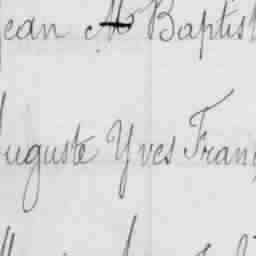 Jean M Baptist
Auguste Yves Franç